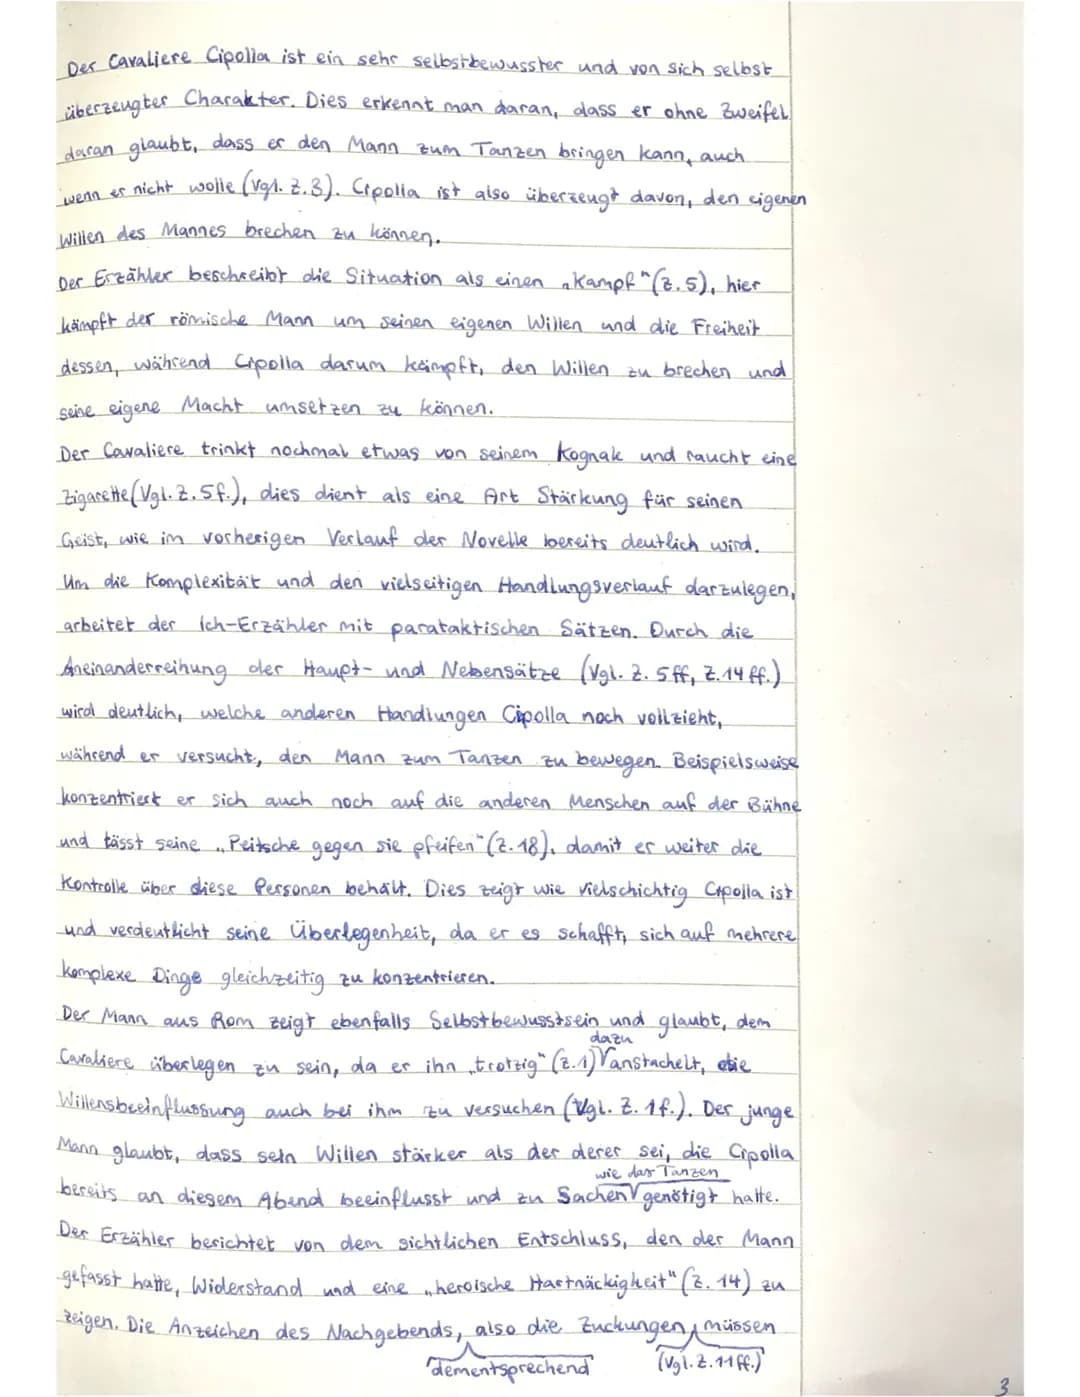 Der Cavaliere Cipolla ist ein sehr selbstbewusster und von sich selbst
überzeugter Charakter. Dies erkennt man daran, dass er ohne Zweifel
daran glaubt, dass er den Mann zum Tanzen bringen kann, auch
wenn er nicht wolle (Vgl. Z.3). Cipolla ist also überzeugt davon, den eigenen
Willen des Mannes brechen zu können.
Der Erzähler beschreibt die Situation als einen „Kampf" (Z.5), hier
kämpft der römische Mann um seinen eigenen Willen und die Freiheit
dessen, während Cipolla darum kämpft, den Willen zu brechen und
seine eigene Macht umsetzen zu können.
Der Cavaliere trinkt nochmal etwas von seinem Kognak und raucht eine
Zigarette (Vgl. Z.5f.), dies dient als eine Art Stärkung für seinen
Geist, wie im vorherigen Verlauf der Novelle bereits deutlich wird.
Um die Komplexität und den vielseitigen Handlungsverlauf darzulegen,
arbeitet der Ich-Erzähler mit parataktischen Sätzen. Durch die
Aneinanderreihung der Haupt- und Nebensätze (Vgl. Z. 5ff, Z.14ff.)
wird deutlich, welche anderen Handlungen Cipolla noch vollzieht,
während er versucht, den Mann zum Tanzen zu bewegen. Beispielsweise
konzentriert er sich auch noch auf die anderen Menschen auf der Bühne
und lässt seine „Peitsche gegen sie pfeifen" (Z.18), damit er weiter die
Kontrolle über diese Personen behält. Dies zeigt wie vielschichtig Cipolla ist
und verdeutlicht seine Überlegenheit, da er es schafft, sich auf mehrere
komplexe Dinge gleichzeitig zu konzentrieren.
Der Mann aus Rom zeigt ebenfalls Selbstbewusstsein und glaubt, dem
dazu
Cavaliere überlegen zu sein, da er ihn „trotzig" (Z.1) anstachelt, die
Willensbeeinflussung auch bei ihm zu versuchen (Vgl. Z. 1f.). Der junge
Mann glaubt, dass sein Willen stärker als der derer sei, die Cipolla
wie das Tanzen
bereits an diesem Abend beeinflusst und zu Sachen genötigt hatte.
Der Erzähler berichtet von dem sichtlichen Entschluss, den der Mann
gefasst hatte, Widerstand und eine „heroische Hartnäckigkeit" (Z. 14) zu
zeigen. Die Anzeichen des Nachgebends, also die Zuckungen, müssen
dementsprechend (Vgl. Z.11ff.)
3